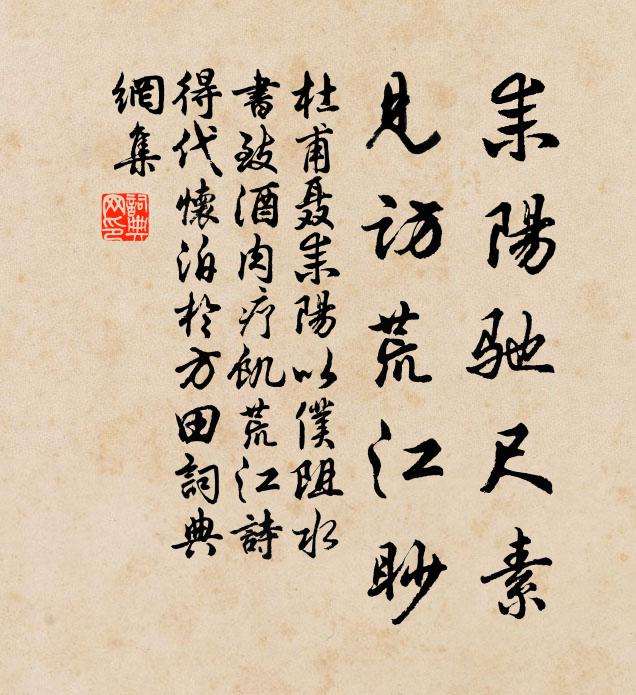 耒陽馳尺素
見訪荒江眇
杜甫聂耒陽以僕阻水
書致酒肉疗飢荒江詩
得代懷泊於方田詞典
網集
詞典
网印